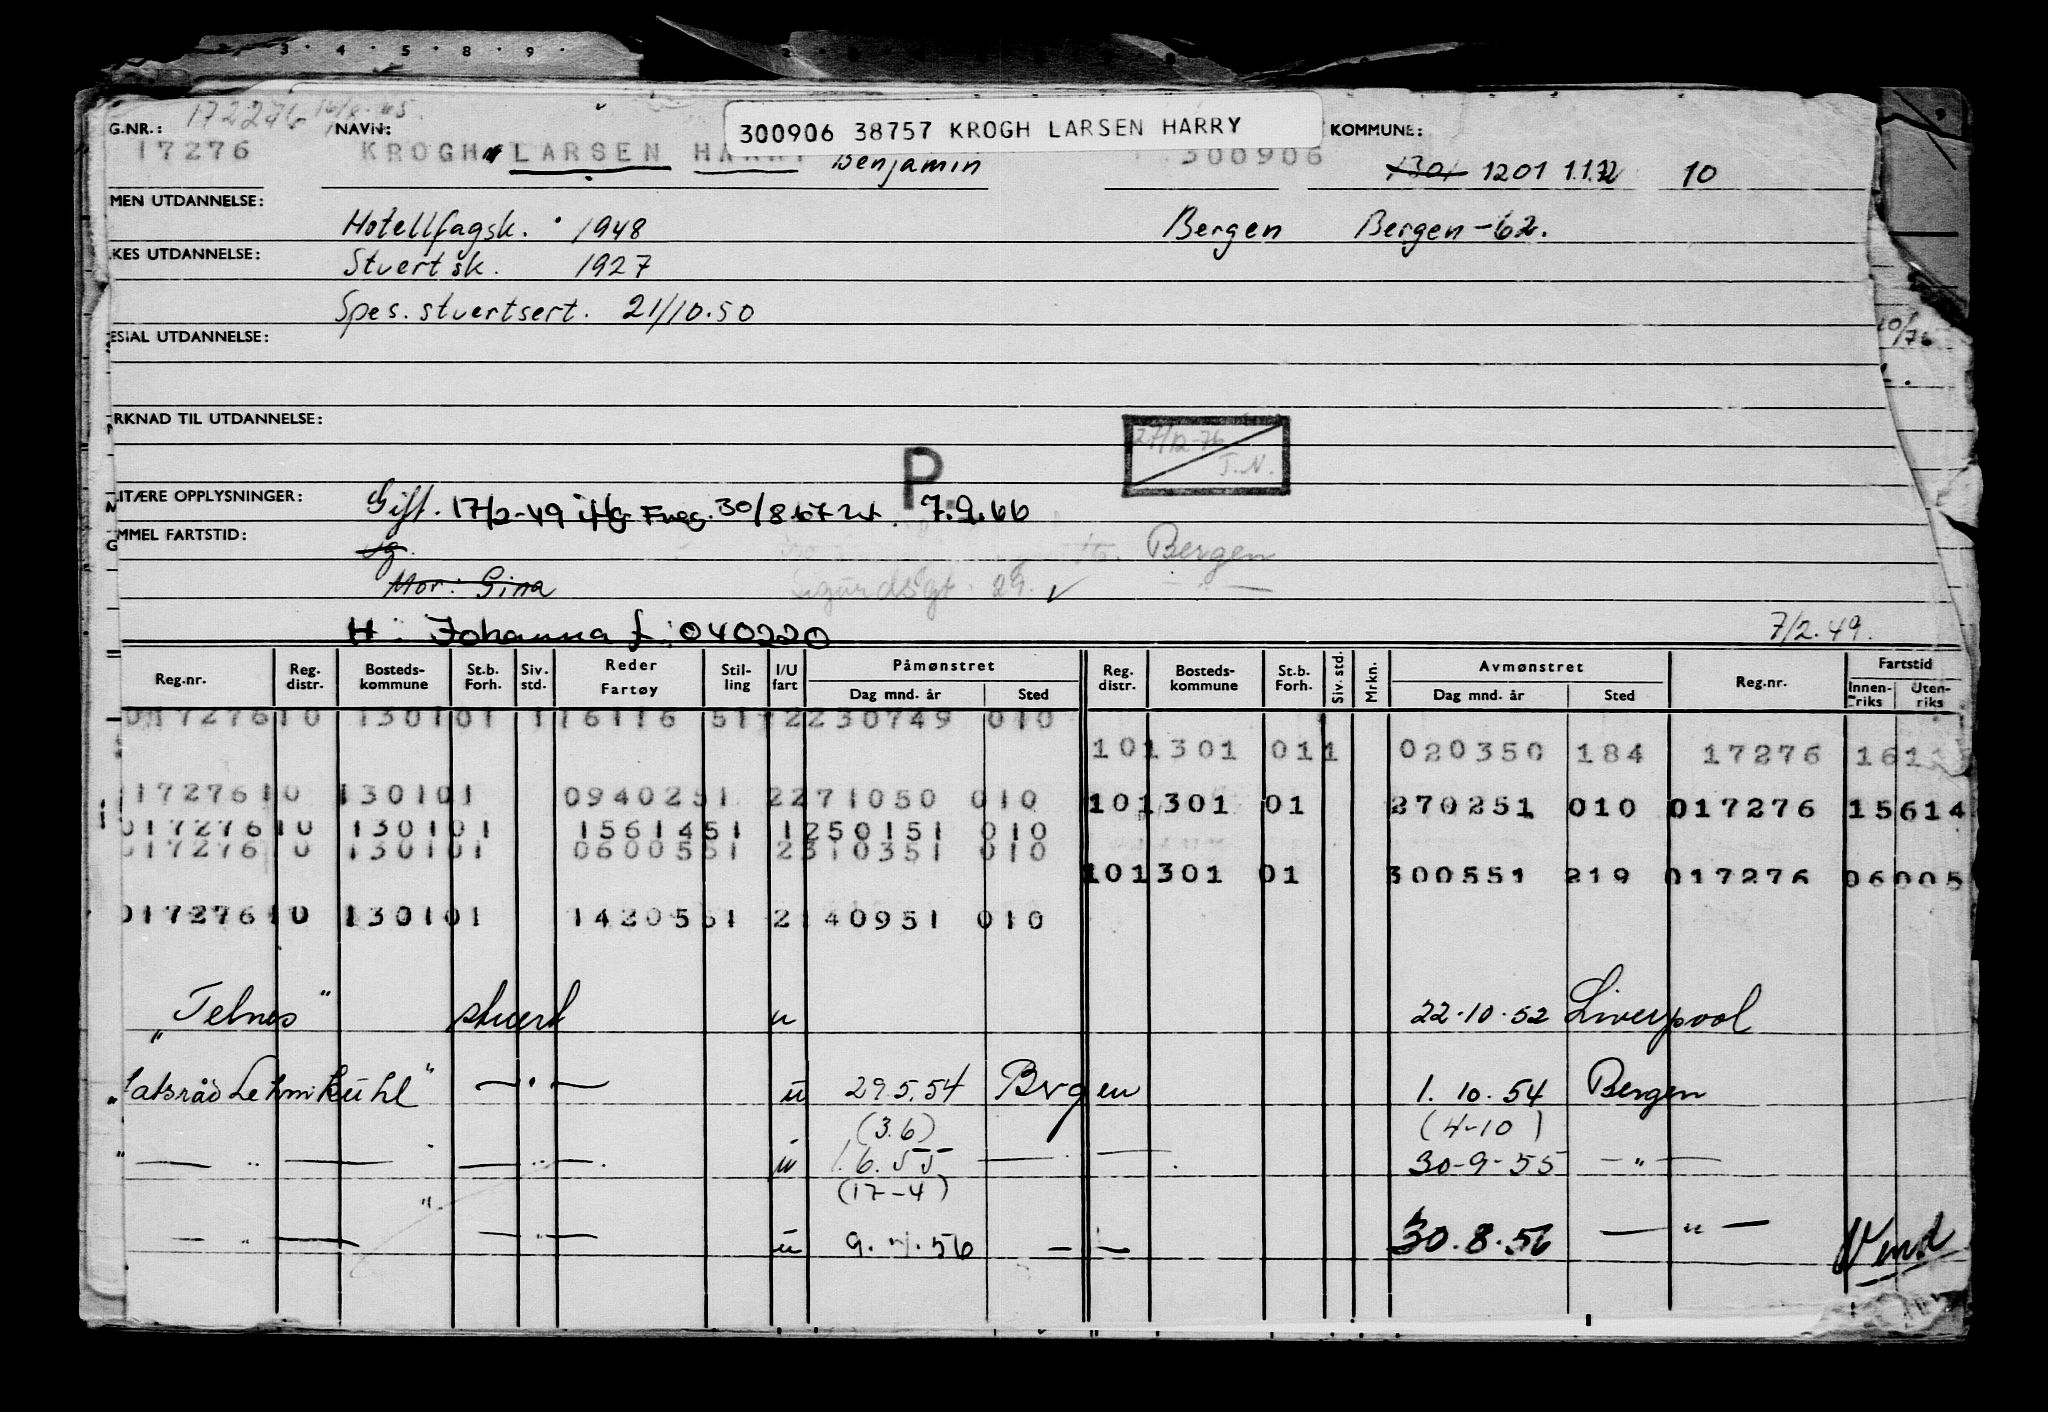 3 · 4 · 5 · 8 · 9 ·
172276 16/8.45.
G.NR.: NAVN: 300906 38757 KROGH LARSEN HARRY KOMMUNE:
17276 KROGH LARSEN HARRY Benjamin 300906 1301 1201 1.1.72 10
MEN UTDANNELSE:
Hotellfagsk. 1948 Bergen Bergen-62.
KES UTDANNELSE:
Stuertsk. 1927
Spes. stuertsert. 21/10.50
ESIAL UTDANNELSE:
RKNAD TIL UTDANNELSE:
27/12-76
T.N.
P.
ITÆRE OPPLYSNINGER:
Gift. 17/2-49 iflg Freg. 30/8 7.9.66
MMEL FARTSTID:
ug. Bergen
Mor: Gina Sigurdsgt. 29. ✓ — " —
H: Johanna f. 040220 7/2.49.
Reg.nr. Reg. distr. Bosteds-kommune St.b. Forh. Siv. std. Reder Fartøy Stil-ling I/U fart Påmønstret Dag mnd. år Sted Reg. distr. Bosteds-kommune St.b. Forh. Siv. std. Mrkn. Avmønstret Dag mnd. år Sted Reg.nr. Fartstid Innen-riks Uten-riks
01727610 130101 116116 511 2230749 010
101301 011 020350 184 17276 161
1727610 130101 0940251 2271050 010
101301 01 270251 010 017276 15614
01727610 130101 1561451 1250151 010
01727610 130101 0600551 2310351 010
101301 01 300551 219 017276 06005
01727610 130101 1420551 2140951 010
"Telnes" stuert u 22.10.52 Liverpool
"Statsråd Lehmkuhl" — " — u 29.5.54 Bergen 1.10.54 Bergen
(3.6) (4-10)
" — " — — " — u 1.6.55 — " — 30-9-55 — " —
(17-4)
— " — — " — u 9.4.56 — " — 30.8.56 — " — Vend